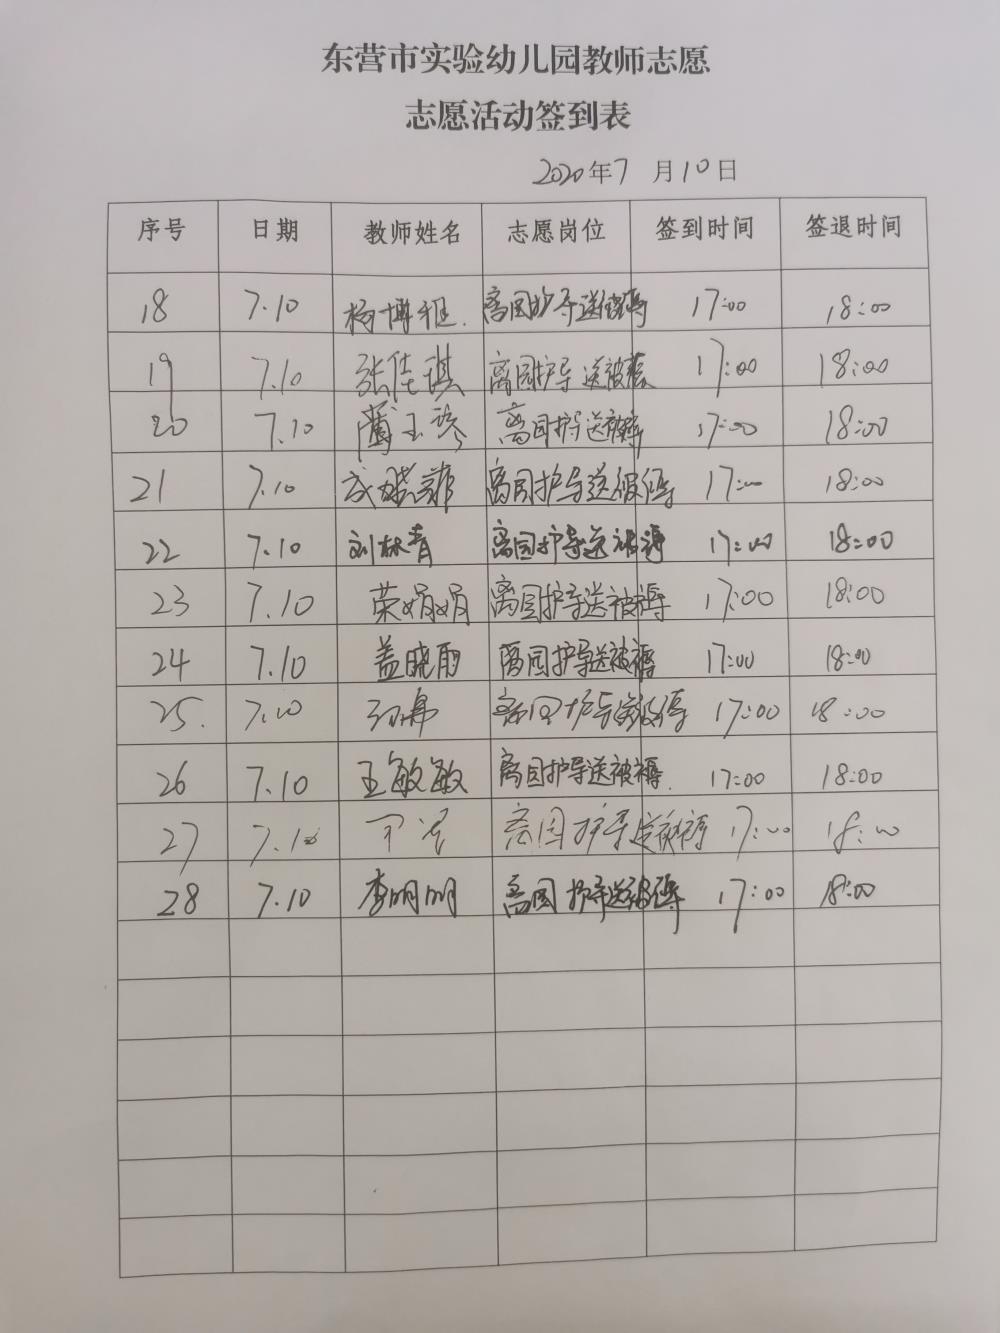 东营市实验幼儿园教师志愿
志愿活动签到表
2020年7月10日
序号 日期 教师姓名 志愿岗位 签到时间 签退时间
18 7.10 杨博雅. 离园护导送被褥 17:00 18:00
19 7.10 张佳琪 离园护导送被褥 17:00 18:00
20 7.10 玉珍 离园护导送被褥 17:00 18:00
21 7.10 离园护导送被褥 17:00 18:00
22 7.10 刘林青 离园护导送被褥 17:00 18:00
23 7.10 荣娟娟 离园护导送被褥 17:00 18:00
24 7.10 盖晓雨 离园护导送被褥 17:00 18:00
25. 7.10 离园护导送被褥 17:00 18:00
26 7.10 王敏敏 离园护导送被褥. 17:00 18:00
27 7.10 离园护导送被褥 17:00 18:00
28 7.10 李明明 离园护导送被褥 17:00 18:00